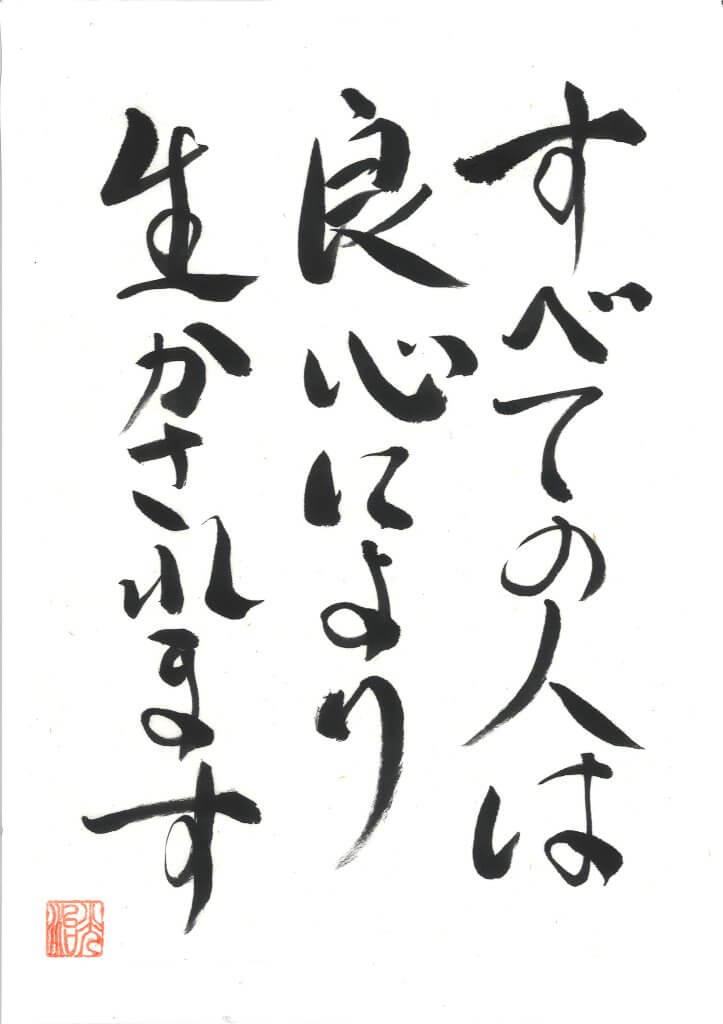 すべての人は
良心により
生かされます